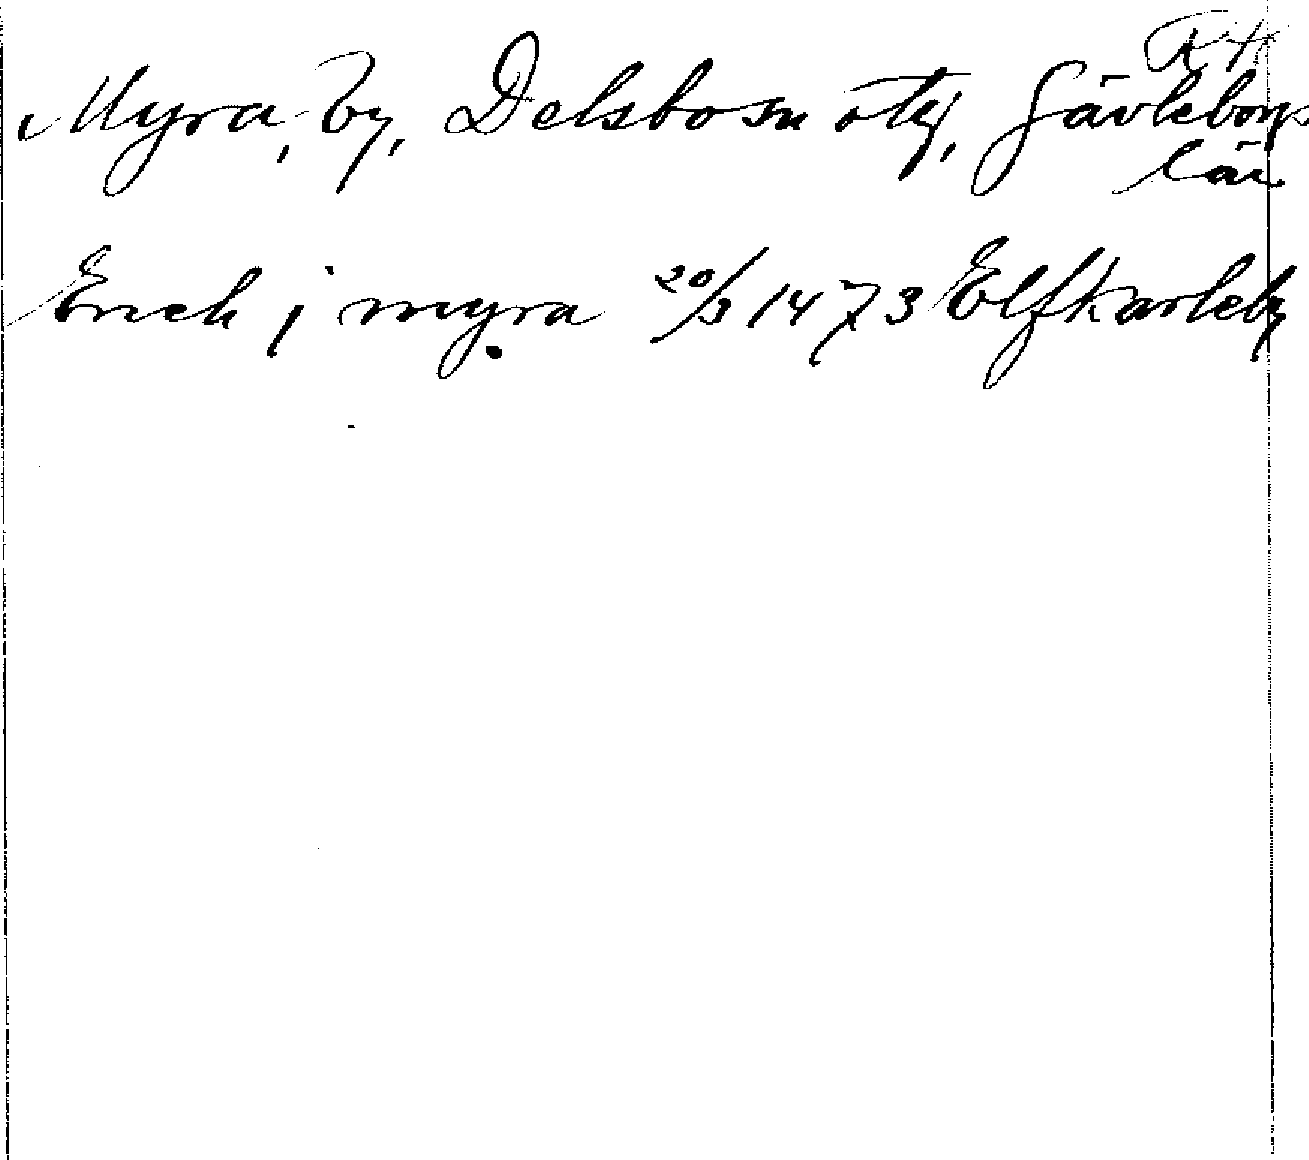 RA
Myra, by, Delsbo sn o tg, Gävleborgs
län
Erich j myra 20/3 1473 Elfkarleby